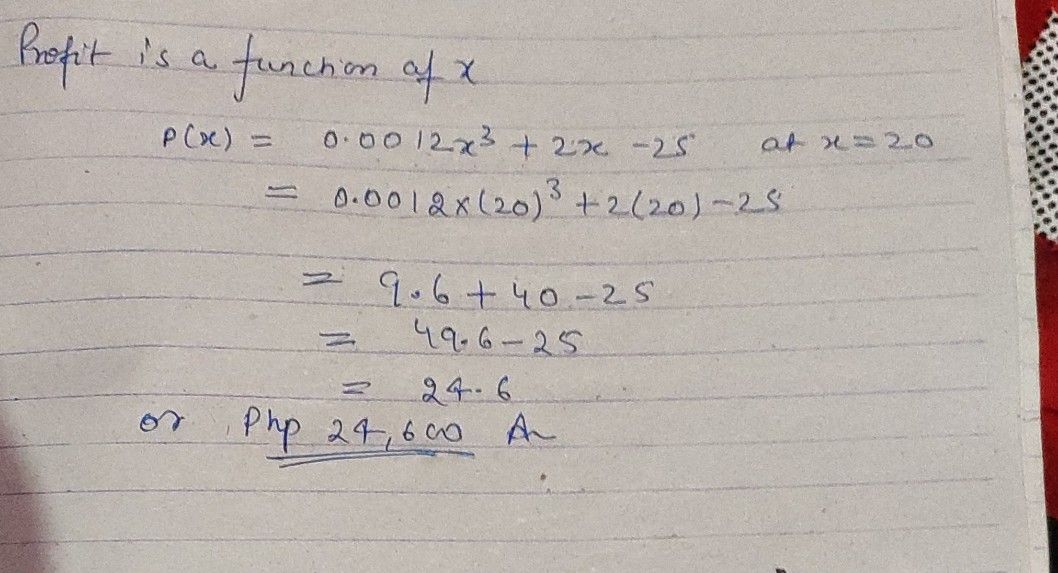 Profit is a function of x
P(x) = 0.0012x³ + 2x - 25 at x = 20
= 0.0012x(20)³ + 2(20) - 25
= 9.6 + 40 - 25
= 49.6 - 25
= 24.6
or Php 24,600 A